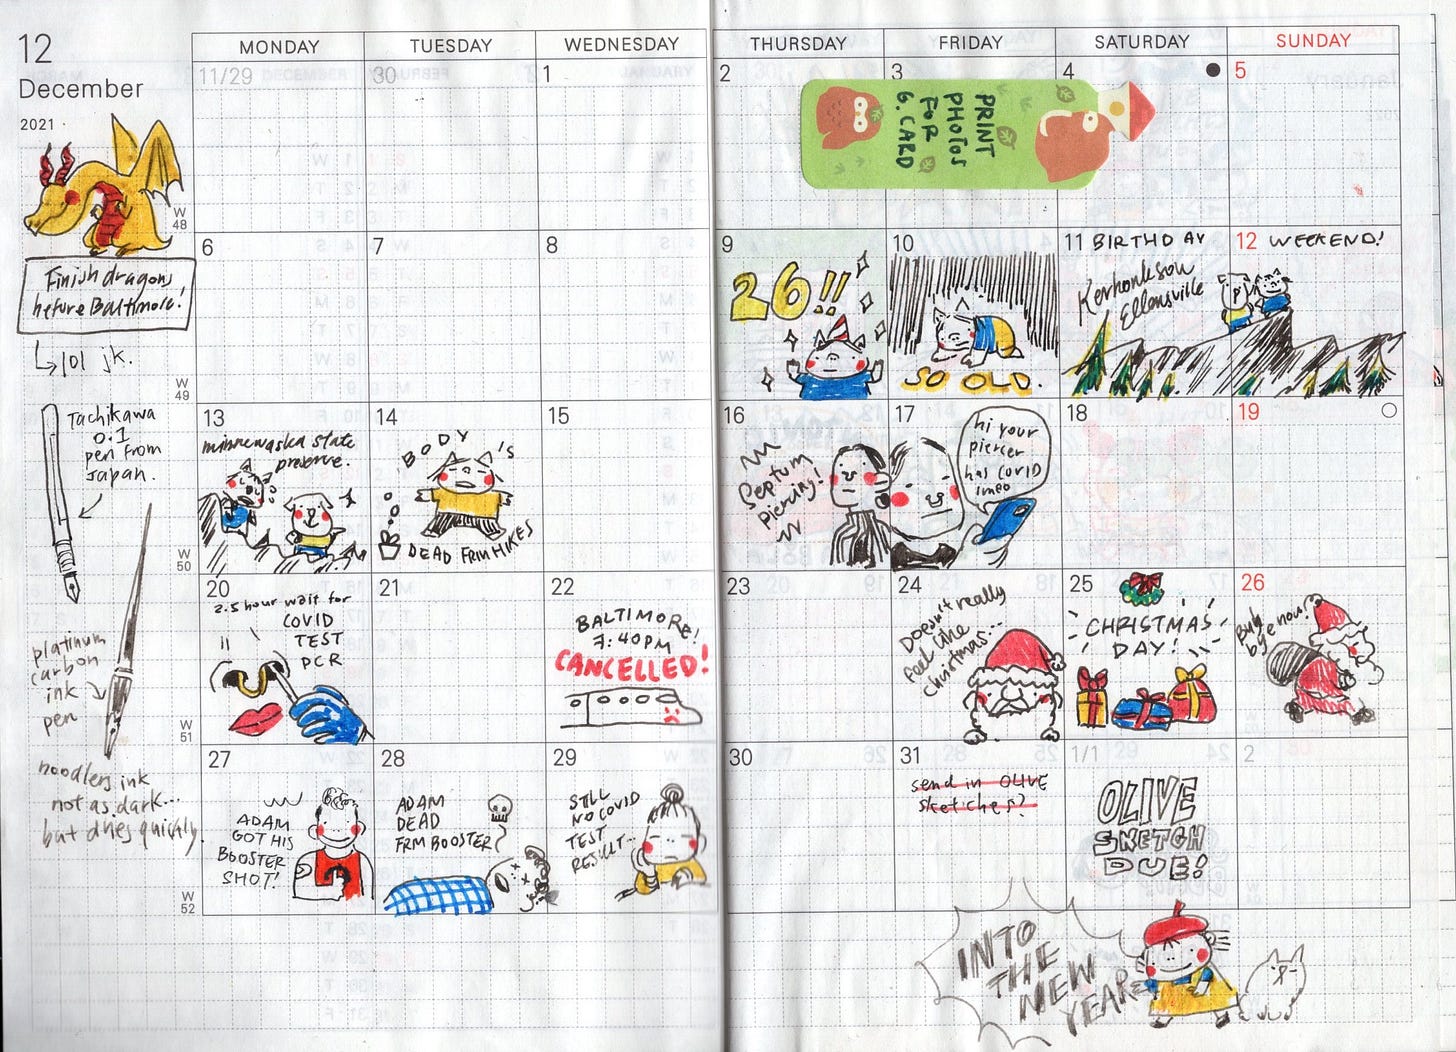 12
December
2021
MONDAY
TUESDAY
WEDNESDAY
THURSDAY
FRIDAY
SATURDAY
SUNDAY
11/29
30
1
2
3
4
5
PRINT
PHOTOS
FOR
G. CARD
W
48
Finish dragons
before Baltimore!
lol jk.
6
7
8
9
26!!
10
SO OLD.
11 BIRTHDAY
12 WEEKEND!
Kerhonkson
Ellensville
W
49
Tachikawa
0.1
pen from
Japan.
13
minnewaska state
preserve.
14
BODY'S
DEAD FRM HIKES
15
16
Septum
Piercing!
17
hi your
piercer
has covid
lmao
18
19
W
50
platinum
carbon
ink
pen
20
2.5 hour wait for
COVID
TEST
PCR
21
22
BALTIMORE!
7:40PM
CANCELLED!
23
24
Doesn't really
feel like
christmas...
25
CHRISTMAS
DAY!
26
Buh
bye now!
W
51
noodlers ink
not as dark...
but dries quickly
27
ADAM
GOT HIS
BOOSTER
SHOT!
28
ADAM
DEAD
FRM BOOSTER
29
STILL
NO COVID
TEST
RESULT...
30
31
send in OLIVE
sketches?
1/1
OLIVE
SKETCH
DUE!
2
W
52
INTO
THE
NEW
YEAR